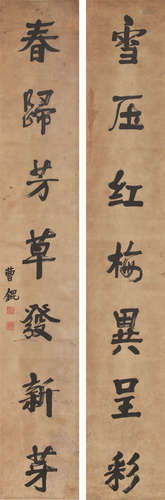 雪压红梅異呈彩
春歸芳草發新芽
曹錕